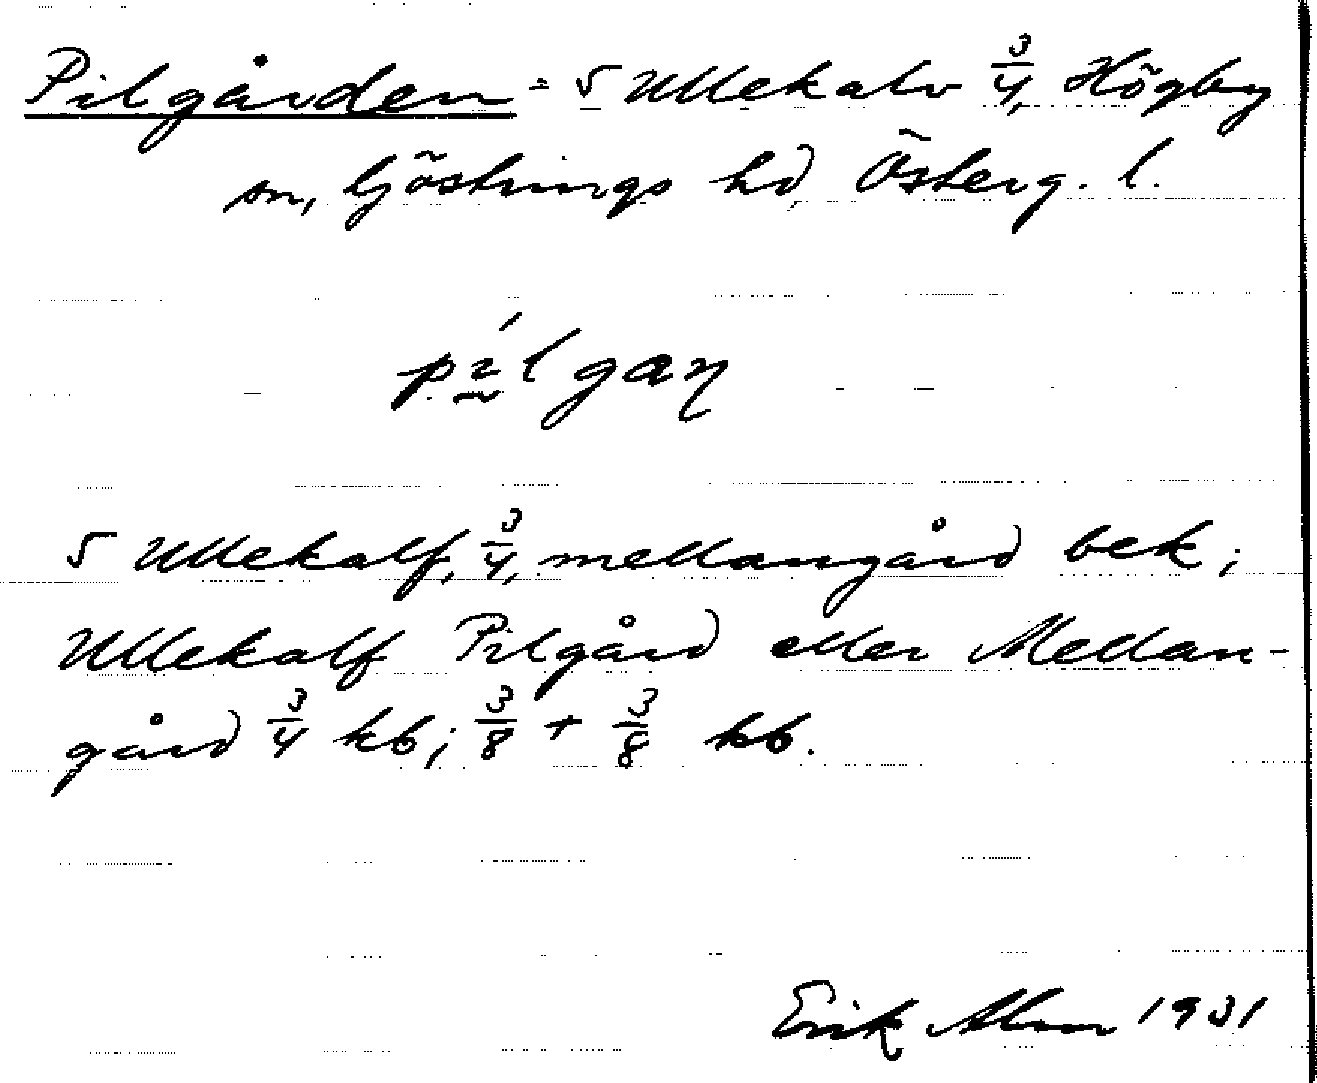 Pilgården = 5 Ullekalv 3/4, Högby
sn, Göstrings hd, Österg. l.
pìl gaɳ
5 Ullekalf, 3/4, mellangård bek;
Ullekalf Pilgård eller Mellan-
gård 3/4 kb; 3/8 + 3/8 kb.
Erik Alm 1931